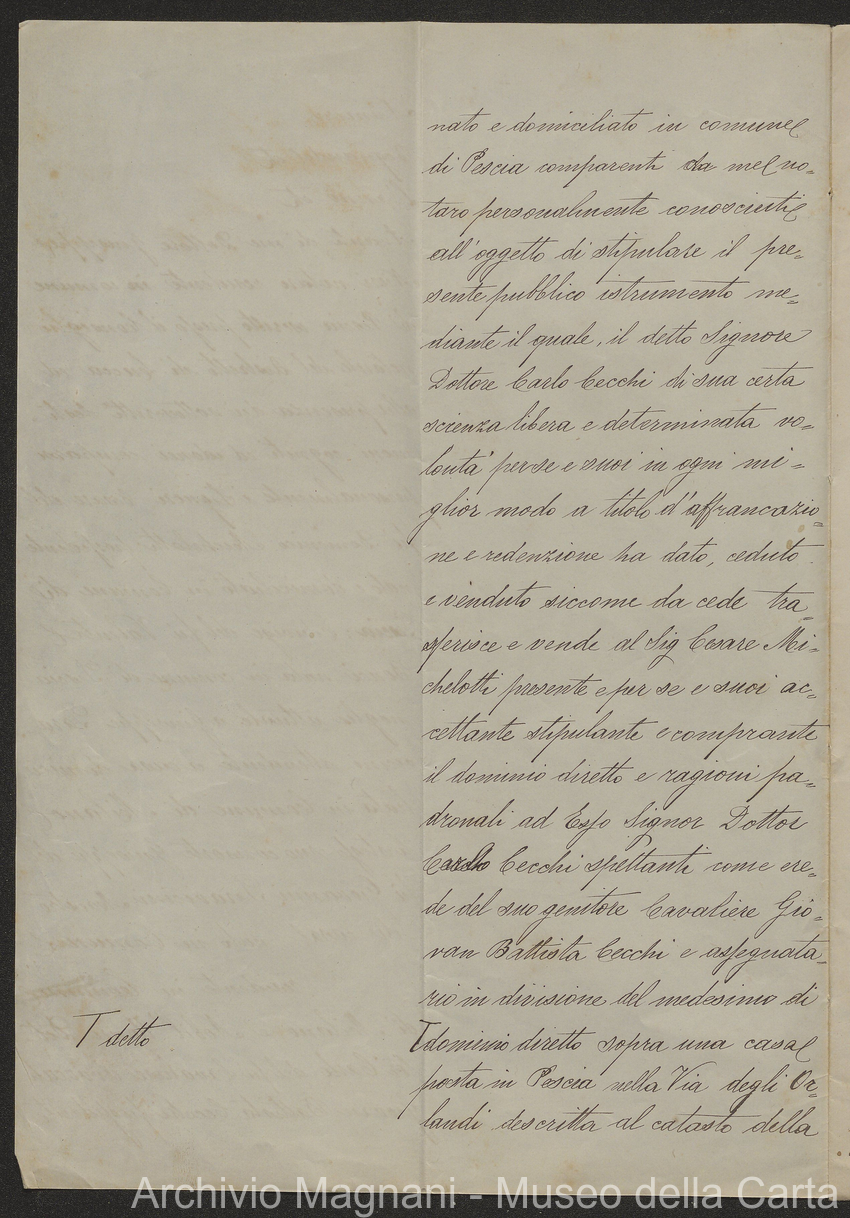 nato e domiciliato in comune
di Pescia comparenti da me no=
taro personalmente conosciuti
all'oggetto di stipulare il pre=
sente pubblico istrumento me=
diante il quale, il detto Signore
Dottore Carlo Cecchi di sua certa
scienza libera e determinata vo=
lontà per se e suoi in ogni mi=
glior modo a titolo d'affrancazio=
ne e redenzione ha dato, ceduto
e venduto siccome da cede tra=
sferisce e vende al Sig Cesare Mi=
chelotti presente e per se e suoi ac=
cettante stipulante e comprante
il dominio diretto e ragioni pa=
dronali ad Esso Signor Dottor
Carlo Cecchi spettanti come ere=
de del suo genitore Cavaliere Gio=
van Battista Cecchi e assegnata=
rio in divisione del medesimo di
T detto
T dominio diretto sopra una casa
posta in Pescia nella Via degli Or=
landi descritta al catasto della
Archivio Magnani - Museo della Carta